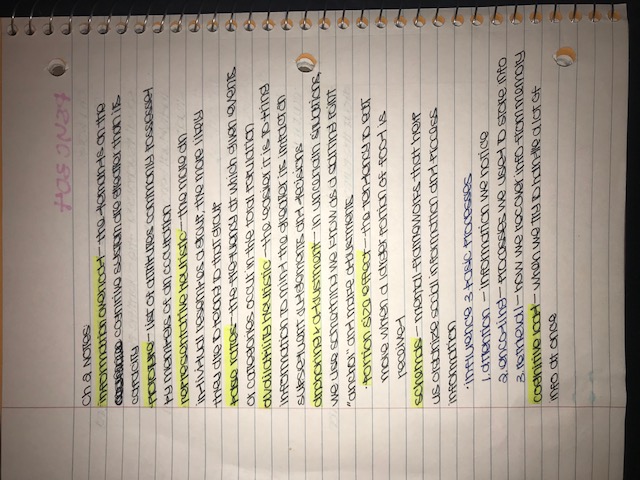 Has ONart
Ch 2 Notes
information overload - the demands on the
cognitive system are greater than its
capacity
prototype - list of attributes commonly possessed
by members of an occupation
representative heuristic - the more an
individual resembles a group, the more likely
they are to belong to that group
base rates - the frequency at which given events
or categories occur in the total population
availability heuristic - the easier it is to bring
information to mind the greater is impact on
subsequent judgements and decisions
anchoring & adjustment - in uncertain situations,
we use something we know as a starting point
"anchor" and make adjustments
· portion size effect - the tendency to eat
more when a larger portion of food is
received
schemas - mental frameworks that help
us organize social information and process
information
· influence 3 basic processes
1. attention - information we notice
2. encoding - processes we used to store info
3. retrieval - how we recover info from memory
cognitive load - when we try to handle a lot of
info at once